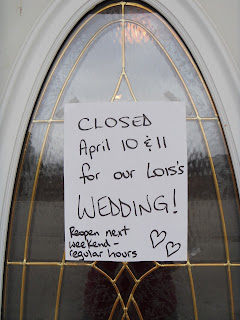 CLOSED
April 10 & 11
for our Lois's
WEDDING!
Reopen next
weekend -
regular hours